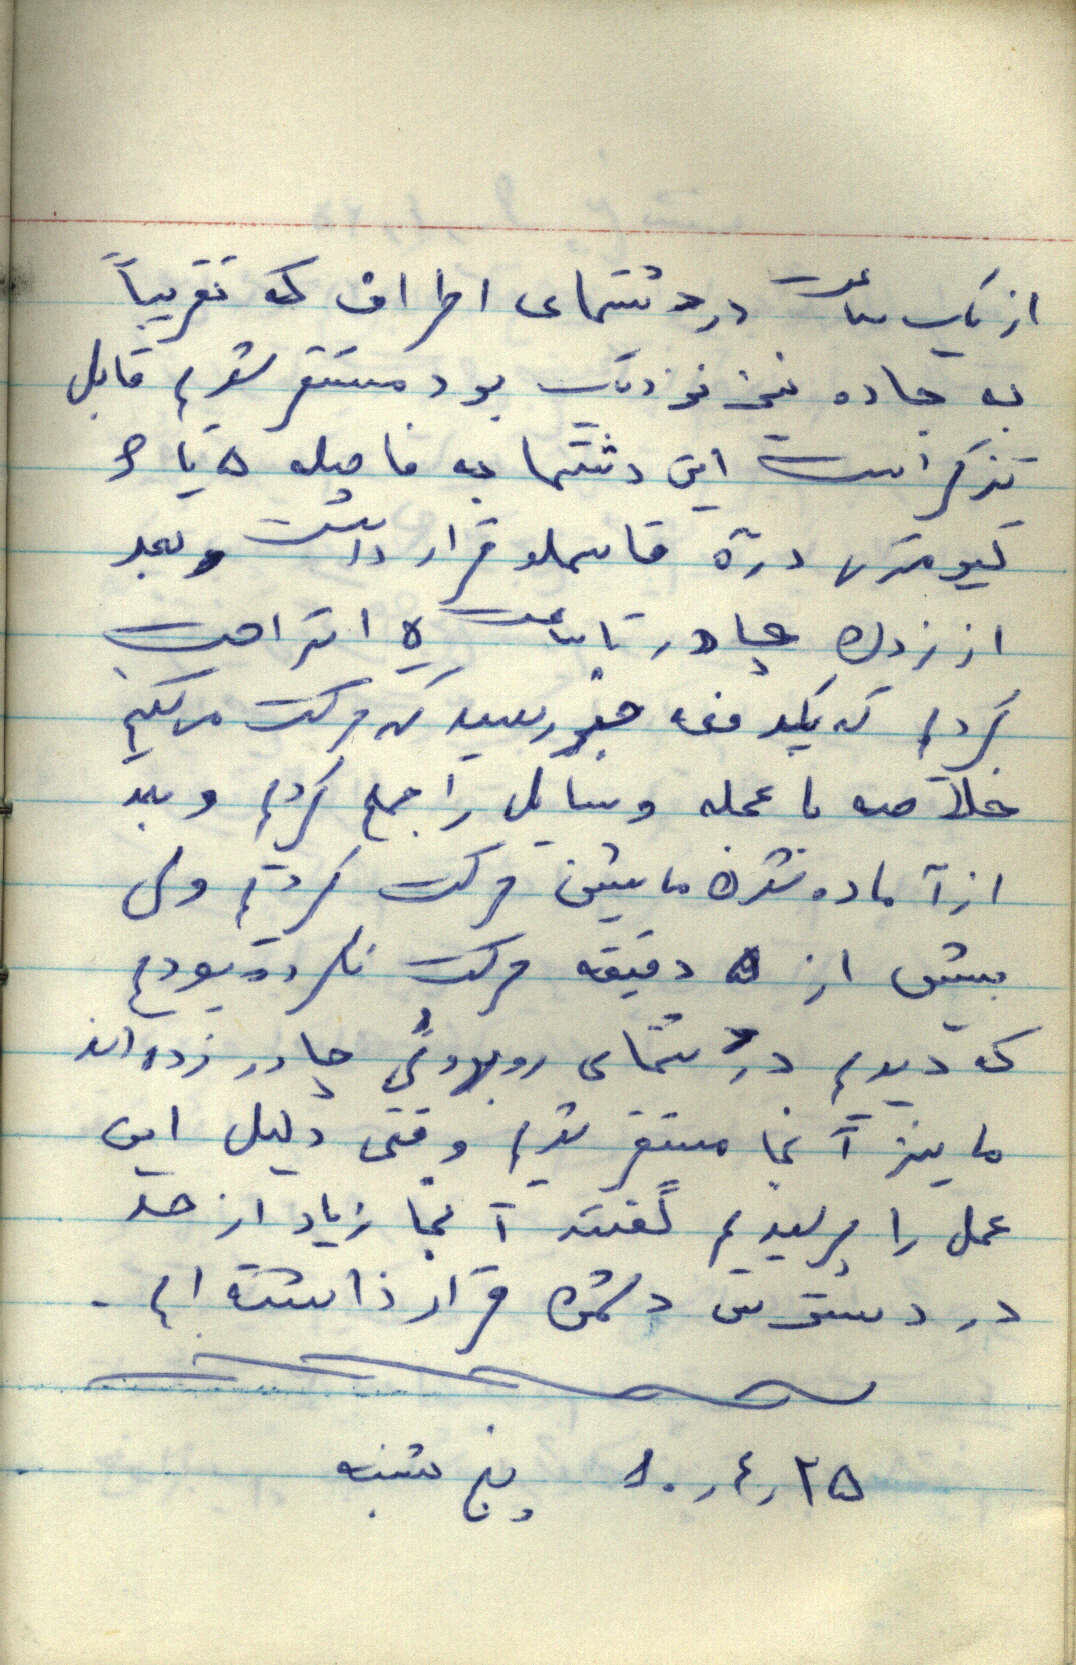 از یک ساعت در دشتهای اطراف که تقریباً
به جاده نیز نزدیک بود مستقر شدیم قابل
تذکر است این دشتها به فاصله ۵ یا ۶
کیومتری درّه قاسملو قرار داشت و بعد
از زدن چادر تا ساعت ۵ استراحت
کردیم که یکدفعه خبر رسید که حرکت میکنیم
خلاصه با عجله وسایل را جمع کردیم و بعد
از آماده شدن ماشین حرکت کردیم ولی
بیش از ۵ دقیقه حرکت نکرده بودیم
که دیدیم در دشتهای روبروئی چادر زده‌اند
ما نیز آنجا مستقر شدیم وقتی دلیل این
عمل را پرسیدیم گفتند آنجا زیاد از حد
در دسترس دشمن قرار داشته ایم .
۲۵ ر ٤ ر ۶۰ پنج شنبه